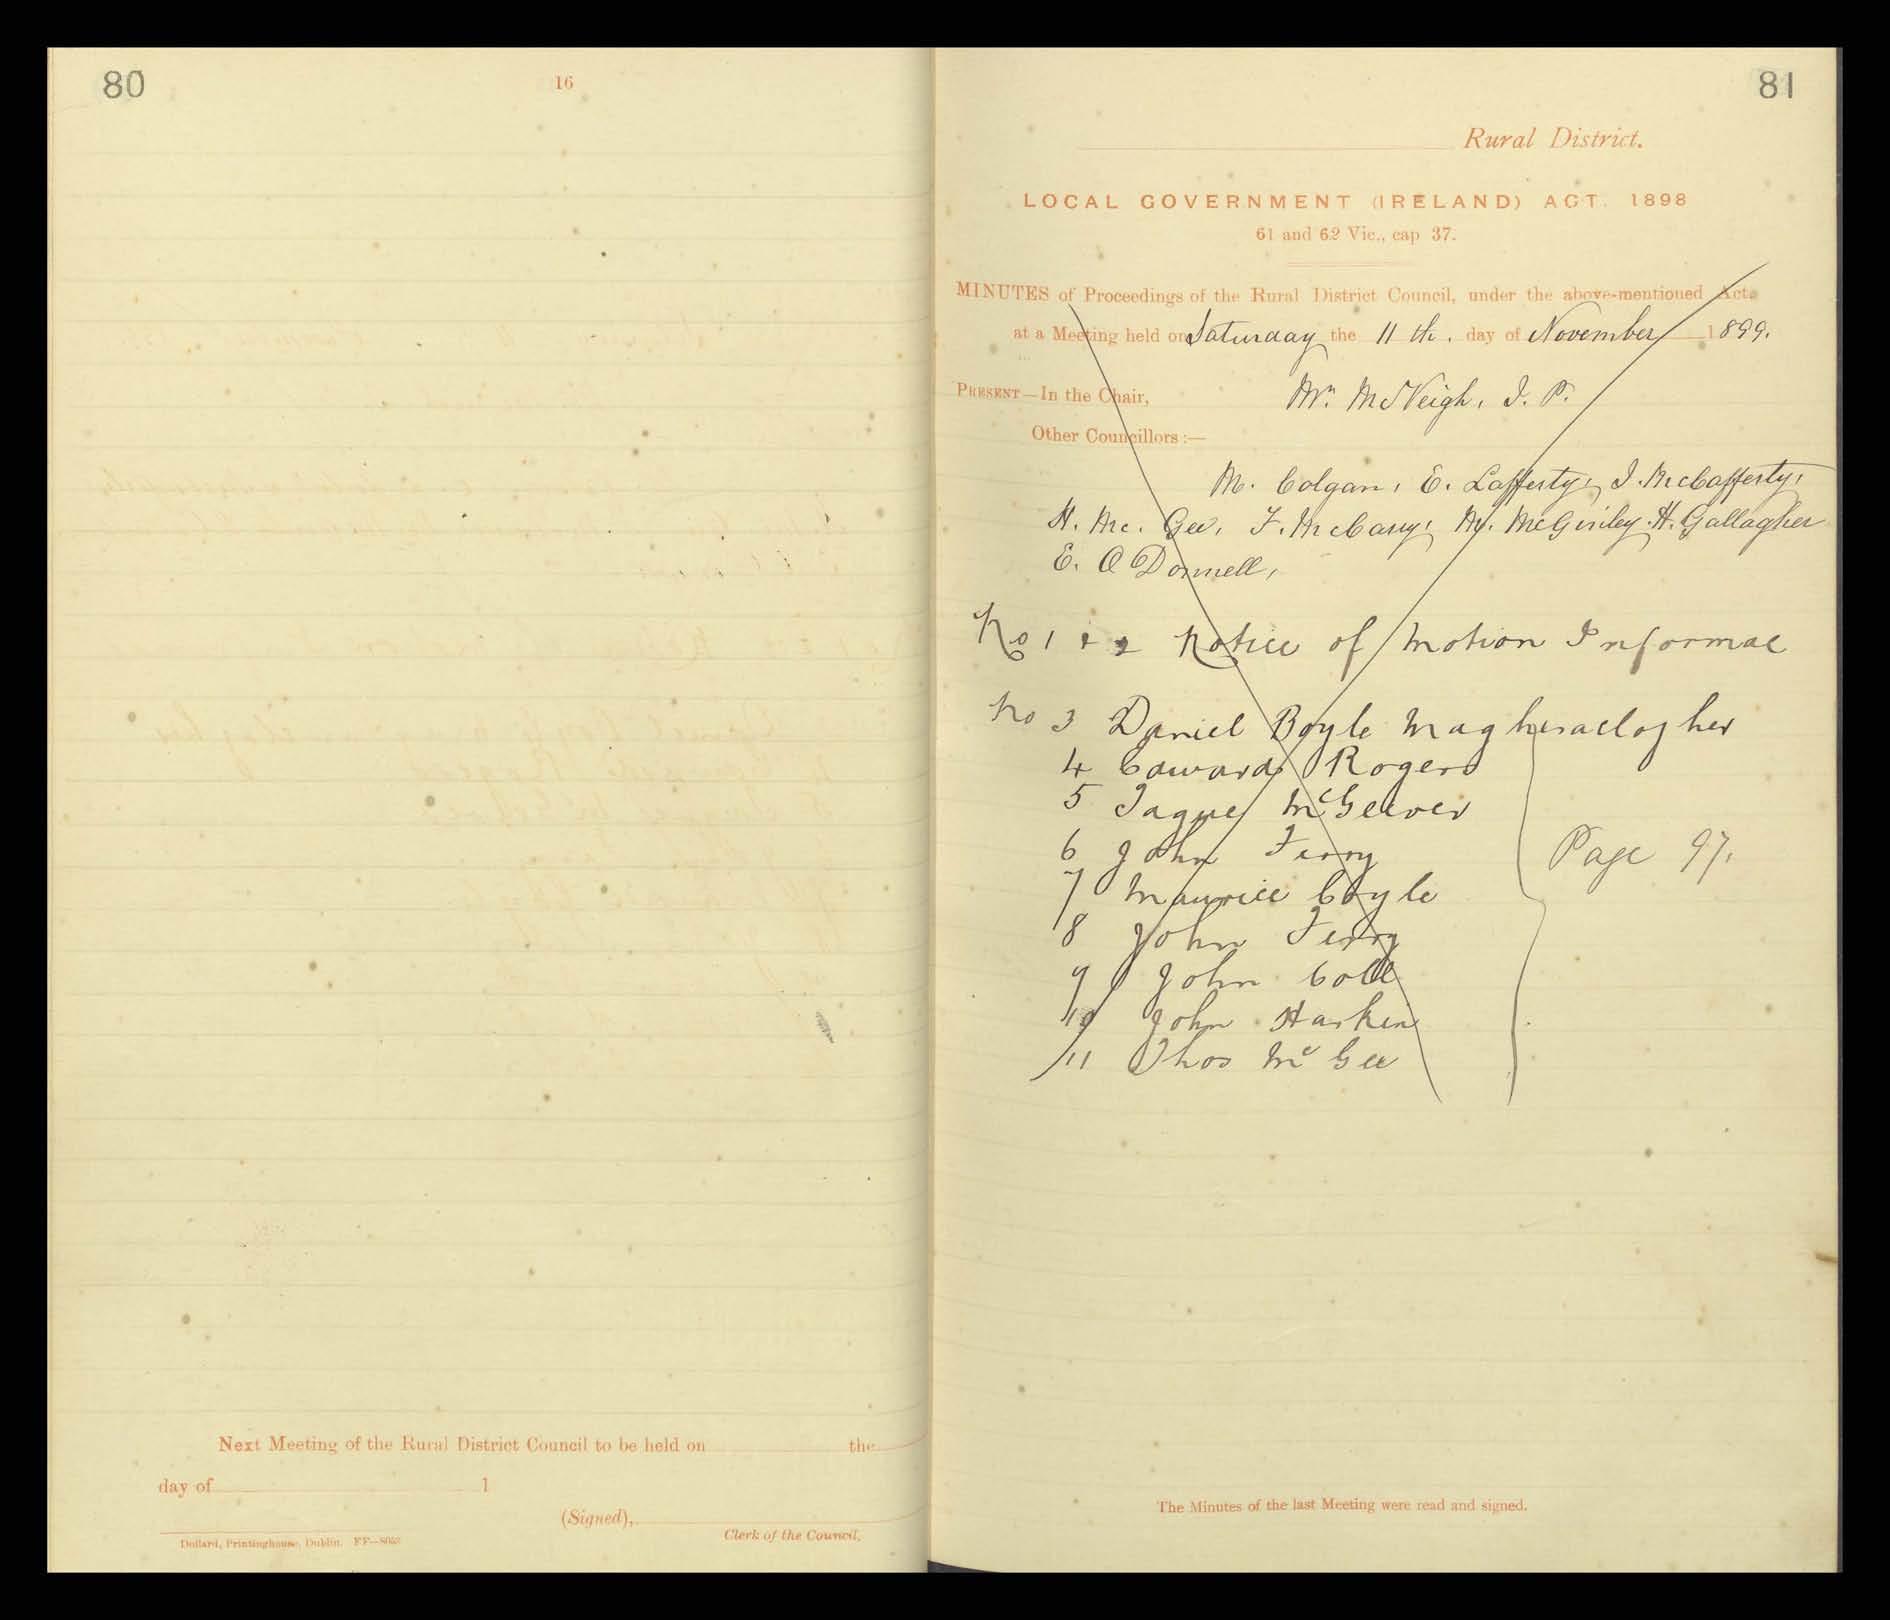 80
16
Next Meeting of the Rural District Council to be held on the
day of 1
(Signed),
Clerk of the Council.
Dollard, Printinghouse, Dublin. FF—8053
81
Rural District.
LOCAL GOVERNMENT (IRELAND) ACT. 1898
61 and 62 Vic., cap 37.
MINUTES of Proceedings of the Rural District Council, under the above-mentioned Act.
at a Meeting held on Saturday the 11th. day of November 1899.
PRESENT—In the Chair, Mr. McVeigh, J. P.
Other Councillors :—
M. Colgan, E. Lafferty, J. McCafferty,
H. Mc. Gee, F. McCarry, M. McGinley H. Gallagher
E. O'Donnell,
No 1 & 2 Notice of Motion Informal
No 3 Daniel Boyle Magheraclogher
4 Edward Rogers
5 Tague McGeever
6 John Ferry
7 Maurice Coyle
8 John Ferry
9 John Coll
10 John Harkin
11 Thos McGee
Page 97.
The Minutes of the last Meeting were read and signed.